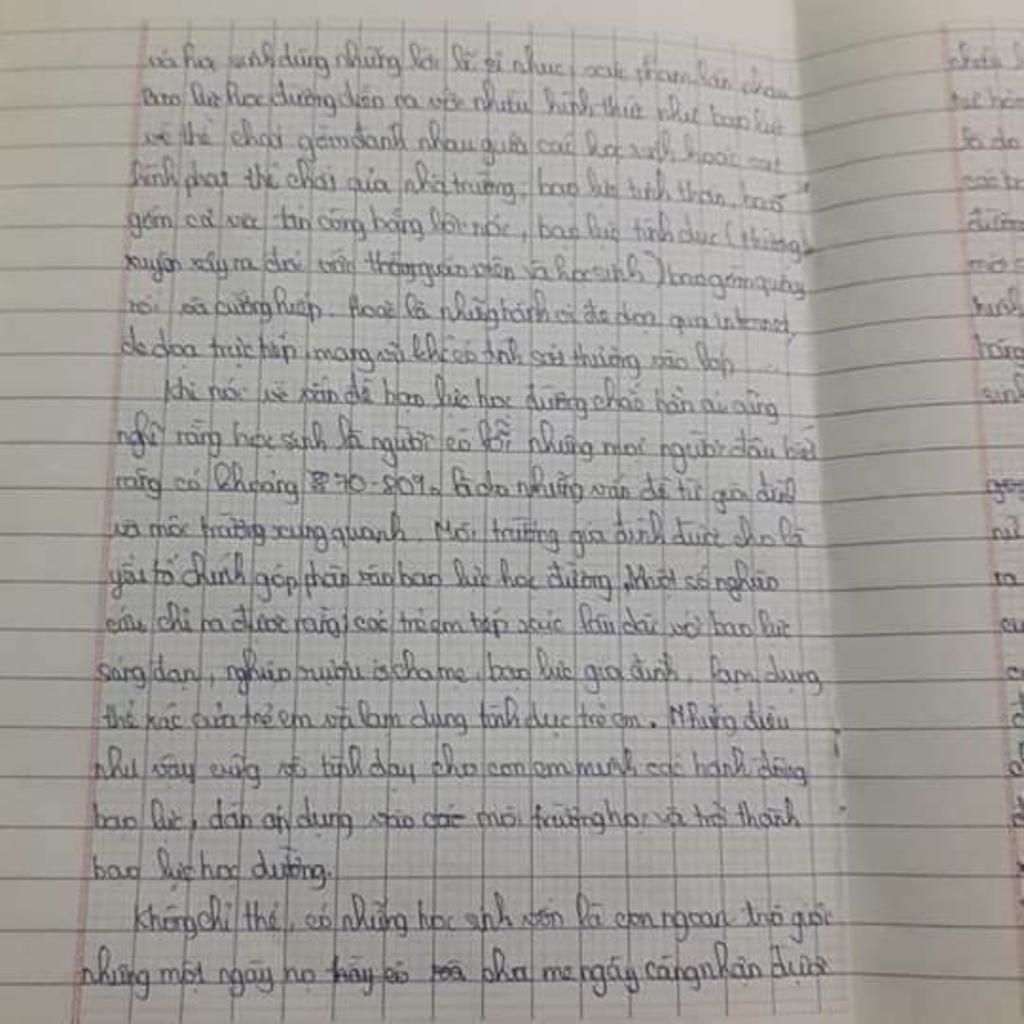 và học sinh dùng những lời lẽ sỉ nhục
bạo lực học đường diễn ra với nhiều hình thức như bạo lực
về thể chất gồm đánh nhau giữa các học sinh hoặc
hình phạt thể chất của nhà trường, bạo lực tinh thần, bao
gồm cả việc tấn công bằng lời nói, bạo lực tình dục (thường
xuyên xảy ra đối với và học sinh) bao gồm quấy
rối và cưỡng hiếp. Hoặc là những hành vi đe dọa qua internet,
đe dọa trực tiếp, mang vũ khí có tính sát thương vào lớp
Khi nói về vấn đề bạo lực học đường chắc hẳn ai cũng
nghĩ rằng học sinh là người có lỗi nhưng mọi người đâu biết
rằng có khoảng 70-80% là do những vấn đề từ gia đình
và môi trường xung quanh. Môi trường gia đình được cho là
yếu tố chính góp phần vào bạo lực học đường. Một số nghiên
cứu chỉ ra được rằng các trẻ em tiếp xúc lâu dài với bạo lực
súng đạn, nghiện rượu ở cha mẹ, bạo lực gia đình, lạm dụng
thể xác của trẻ em và lạm dụng tình dục trẻ em. Những điều
như vậy cũng vô tình dạy cho con em mình các hành động
bạo lực, dần áp dụng vào môi trường học và trở thành
bạo lực học đường.
Không chỉ thế, có những học sinh vốn là con ngoan trò giỏi
nhưng một ngày nọ cha mẹ ngày càng nhận được